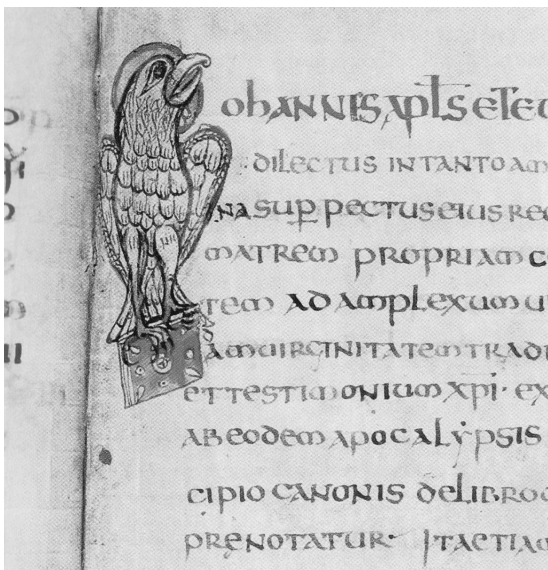 ohannis apls et eu
dilectus in tanto am
na sup pectus eius rec
matrem propriam c
tem ad amplexum u
am uirginitatem tradi
et testimonium xpi· ex
ab eodem apocalypsis
cipio canonis de libro
prenotatur· Ita etiam